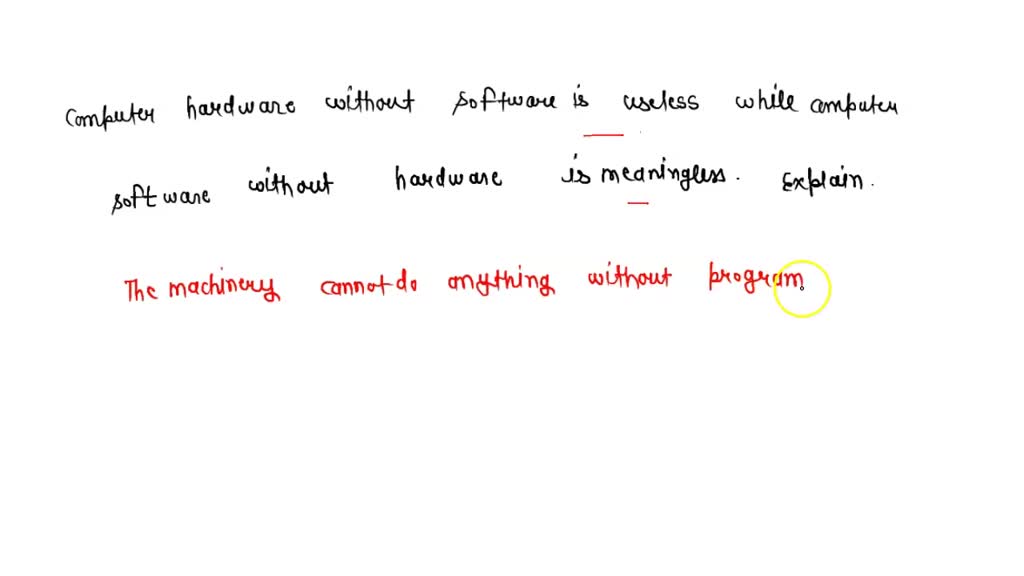 Computer hardware without software is useless while computer
software without hardware is meaningless. Explain.
The machinery cannot do anything without program